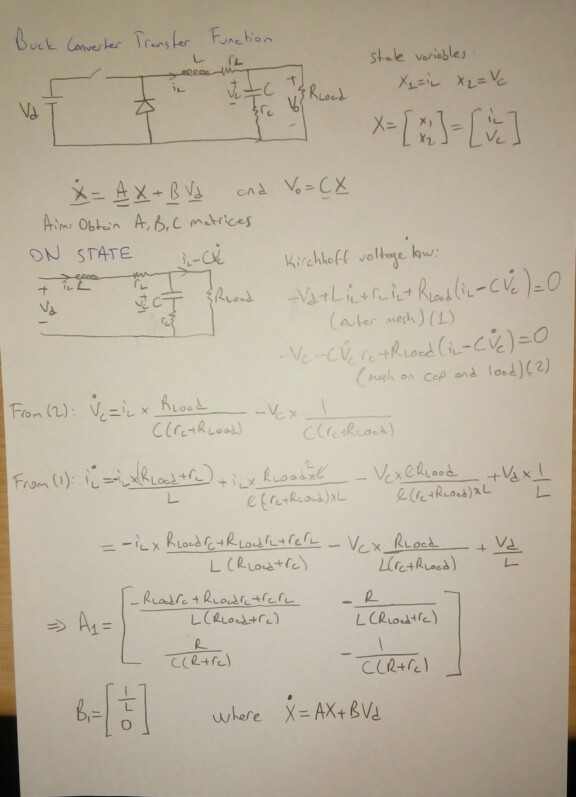 Buck Converter Transfer Function
L rL
iL
Vd
Vc C
rc
+ Vo - RLoad
state variables:
x1=iL x2=Vc
X=[x1 x2]=[iL Vc]
Ẋ = A X + B Vd and Vo = C X
Aim: Obtain A, B, C matrices
ON STATE
iL-CV̇c
iL L rL
+ Vd -
Vc C
rc
RLoad
Kirchhoff voltage law:
-Vd+Li̇L+rLiL+RLoad(iL-CV̇c)=0
(outer mesh)(1)
-Vc-CV̇c rc+RLoad(iL-CV̇c)=0
(mesh on cap and load)(2)
From (2): V̇c=iL x RLoad/C(rc+RLoad) - Vc x 1/C(rc+RLoad)
From (1): i̇L=-iLx(RLoad+rL)/L + iL x RLoad²xC/C(rc+RLoad)xL - VcxCRLoad/C(rc+RLoad)xL + Vd x 1/L
= -iL x RLoadrc+RLoadrL+rcrL/L(RLoad+rc) - Vc x RLoad/L(rc+RLoad) + Vd/L
⇒ A1=[-RLoadrc+RLoadrL+rcrL/L(RLoad+rc) -R/L(RLoad+rc)
R/C(R+rc) -1/C(R+rc)]
B1=[1/L 0] where Ẋ=AX+BVd